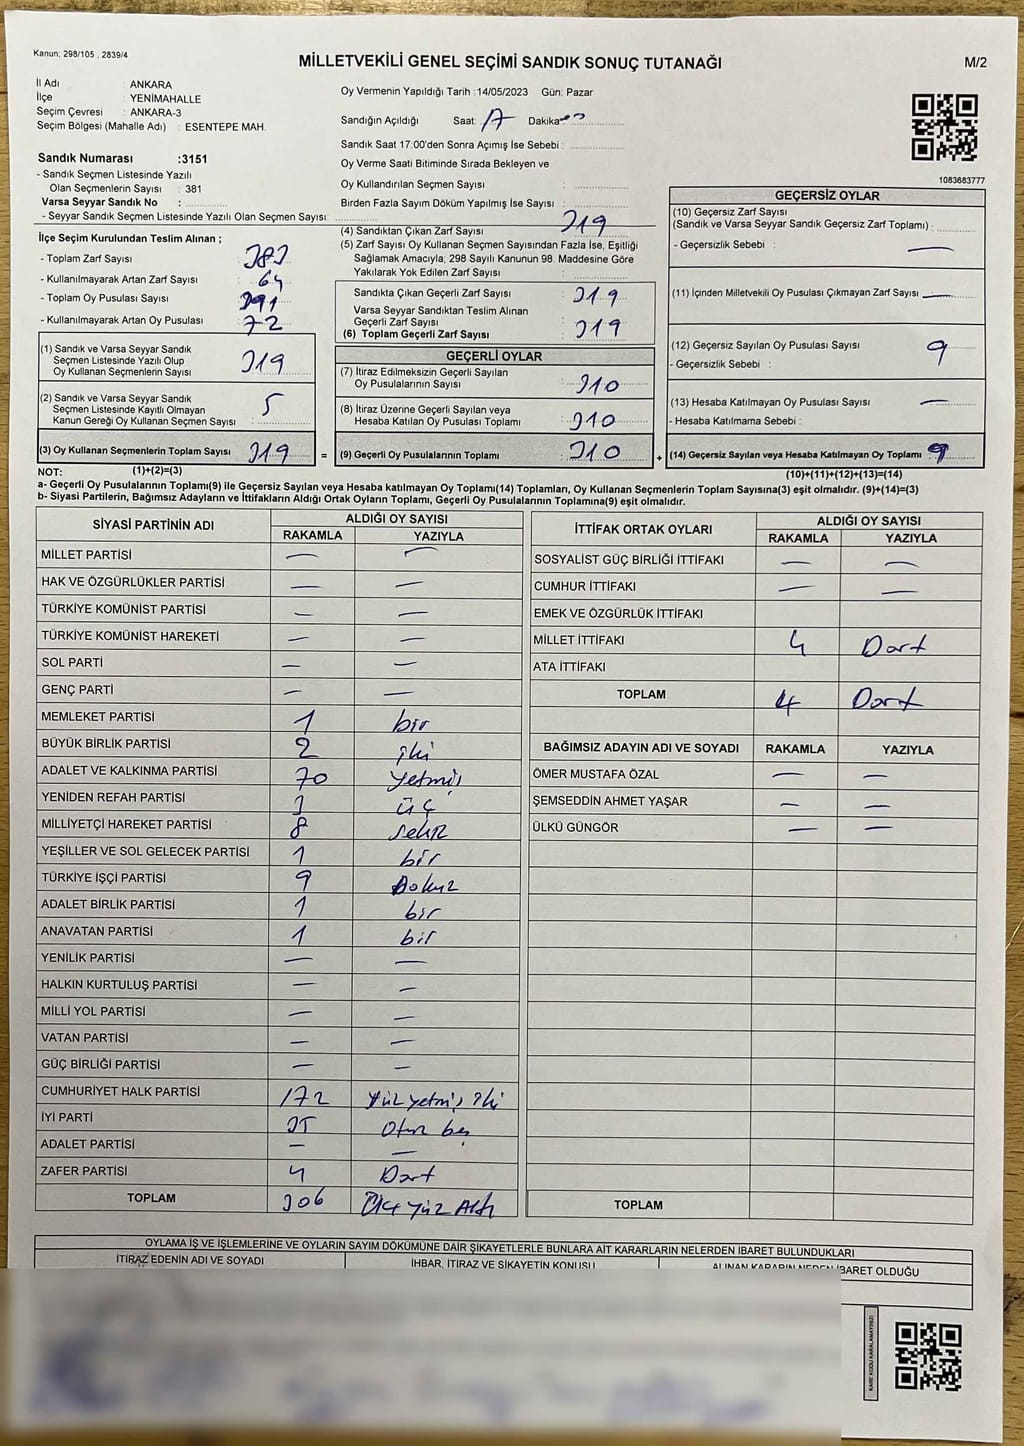 Kanun: 298/105 , 2839/4
MİLLETVEKİLİ GENEL SEÇİMİ SANDIK SONUÇ TUTANAĞI
M/2
İl Adı : ANKARA
İlçe : YENİMAHALLE
Seçim Çevresi : ANKARA-3
Seçim Bölgesi (Mahalle Adı) : ESENTEPE MAH.
Sandık Numarası :3151
- Sandık Seçmen Listesinde Yazılı
Olan Seçmenlerin Sayısı : 381
Varsa Seyyar Sandık No :
- Seyyar Sandık Seçmen Listesinde Yazılı Olan Seçmen Sayısı:
Oy Vermenin Yapıldığı Tarih :14/05/2023 Gün: Pazar
Sandığın Açıldığı Saat: 17 Dakika:
Sandık Saat 17:00'den Sonra Açımış İse Sebebi :
Oy Verme Saati Bitiminde Sırada Bekleyen ve
Oy Kullandırılan Seçmen Sayısı :
Birden Fazla Sayım Döküm Yapılmış İse Sayısı :
1083683777
İlçe Seçim Kurulundan Teslim Alınan ;
- Toplam Zarf Sayısı : 383
- Kullanılmayarak Artan Zarf Sayısı : 64
- Toplam Oy Pusulası Sayısı : 391
- Kullanılmayarak Artan Oy Pusulası : 72
(1) Sandık ve Varsa Seyyar Sandık
Seçmen Listesinde Yazılı Olup
Oy Kullanan Seçmenlerin Sayısı : 319
(2) Sandık ve Varsa Seyyar Sandık
Seçmen Listesinde Kayıtlı Olmayan
Kanun Gereği Oy Kullanan Seçmen Sayısı : 5
(3) Oy Kullanan Seçmenlerin Toplam Sayısı : 319 =
(4) Sandıktan Çıkan Zarf Sayısı : 319
(5) Zarf Sayısı Oy Kullanan Seçmen Sayısından Fazla İse, Eşitliği
Sağlamak Amacıyla; 298 Sayılı Kanunun 98. Maddesine Göre
Yakılarak Yok Edilen Zarf Sayısı :
Sandıkta Çıkan Geçerli Zarf Sayısı : 319
Varsa Seyyar Sandıktan Teslim Alınan
Geçerli Zarf Sayısı :
(6) Toplam Geçerli Zarf Sayısı : 319
GEÇERLİ OYLAR
(7) İtiraz Edilmeksizin Geçerli Sayılan
Oy Pusulalarının Sayısı : 310
(8) İtiraz Üzerine Geçerli Sayılan veya
Hesaba Katılan Oy Pusulası Toplamı : 310
(9) Geçerli Oy Pusulalarının Toplamı : 310 +
GEÇERSİZ OYLAR
(10) Geçersiz Zarf Sayısı
(Sandık ve Varsa Seyyar Sandık Geçersiz Zarf Toplamı) :
- Geçersizlik Sebebi : —
(11) İçinden Milletvekili Oy Pusulası Çıkmayan Zarf Sayısı : —
(12) Geçersiz Sayılan Oy Pusulası Sayısı : 9
- Geçersizlik Sebebi :
(13) Hesaba Katılmayan Oy Pusulası Sayısı : —
- Hesaba Katılmama Sebebi :
(14) Geçersiz Sayılan veya Hesaba Katılmayan Oy Toplamı : 9
NOT: (1)+(2)=(3)
(10)+(11)+(12)+(13)=(14)
a- Geçerli Oy Pusulalarının Toplamı(9) ile Geçersiz Sayılan veya Hesaba katılmayan Oy Toplamı(14) Toplamları, Oy Kullanan Seçmenlerin Toplam Sayısına(3) eşit olmalıdır. (9)+(14)=(3)
b- Siyasi Partilerin, Bağımsız Adayların ve İttifakların Aldığı Ortak Oyların Toplamı, Geçerli Oy Pusulalarının Toplamına(9) eşit olmalıdır.
SİYASİ PARTİNİN ADI ALDIĞI OY SAYISI
RAKAMLA YAZIYLA
MİLLET PARTİSİ — —
HAK VE ÖZGÜRLÜKLER PARTİSİ — —
TÜRKİYE KOMÜNİST PARTİSİ — —
TÜRKİYE KOMÜNİST HAREKETİ — —
SOL PARTİ — —
GENÇ PARTİ — —
MEMLEKET PARTİSİ 1 bir
BÜYÜK BİRLİK PARTİSİ 2 iki
ADALET VE KALKINMA PARTİSİ 70 Yetmiş
YENİDEN REFAH PARTİSİ 3 üç
MİLLİYETÇİ HAREKET PARTİSİ 8 sekiz
YEŞİLLER VE SOL GELECEK PARTİSİ 1 bir
TÜRKİYE İŞÇİ PARTİSİ 9 Dokuz
ADALET BİRLİK PARTİSİ 1 bir
ANAVATAN PARTİSİ 1 bir
YENİLİK PARTİSİ — —
HALKIN KURTULUŞ PARTİSİ — —
MİLLİ YOL PARTİSİ — —
VATAN PARTİSİ — —
GÜÇ BİRLİĞİ PARTİSİ — —
CUMHURİYET HALK PARTİSİ 172 Yüz yetmiş iki
İYİ PARTİ 35 Otuz beş
ADALET PARTİSİ — —
ZAFER PARTİSİ 4 Dört
TOPLAM 306 Üç Yüz Altı
İTTİFAK ORTAK OYLARI ALDIĞI OY SAYISI
RAKAMLA YAZIYLA
SOSYALİST GÜÇ BİRLİĞİ İTTİFAKI — —
CUMHUR İTTİFAKI — —
EMEK VE ÖZGÜRLÜK İTTİFAKI
MİLLET İTTİFAKI 4 Dört
ATA İTTİFAKI
TOPLAM 4 Dört
BAĞIMSIZ ADAYIN ADI VE SOYADI RAKAMLA YAZIYLA
ÖMER MUSTAFA ÖZAL — —
ŞEMSEDDİN AHMET YAŞAR — —
ÜLKÜ GÜNGÖR — —
TOPLAM
OYLAMA İŞ VE İŞLEMLERİNE VE OYLARIN SAYIM DÖKÜMÜNE DAİR ŞİKAYETLERLE BUNLARA AİT KARARLARIN NELERDEN İBARET BULUNDUKLARI
İTİRAZ EDENİN ADI VE SOYADI İHBAR, İTİRAZ VE ŞİKAYETİN KONUSU ALINAN KARARIN NEDEN İBARET OLDUĞU
KARE KODU KARALAMAYINIZ!